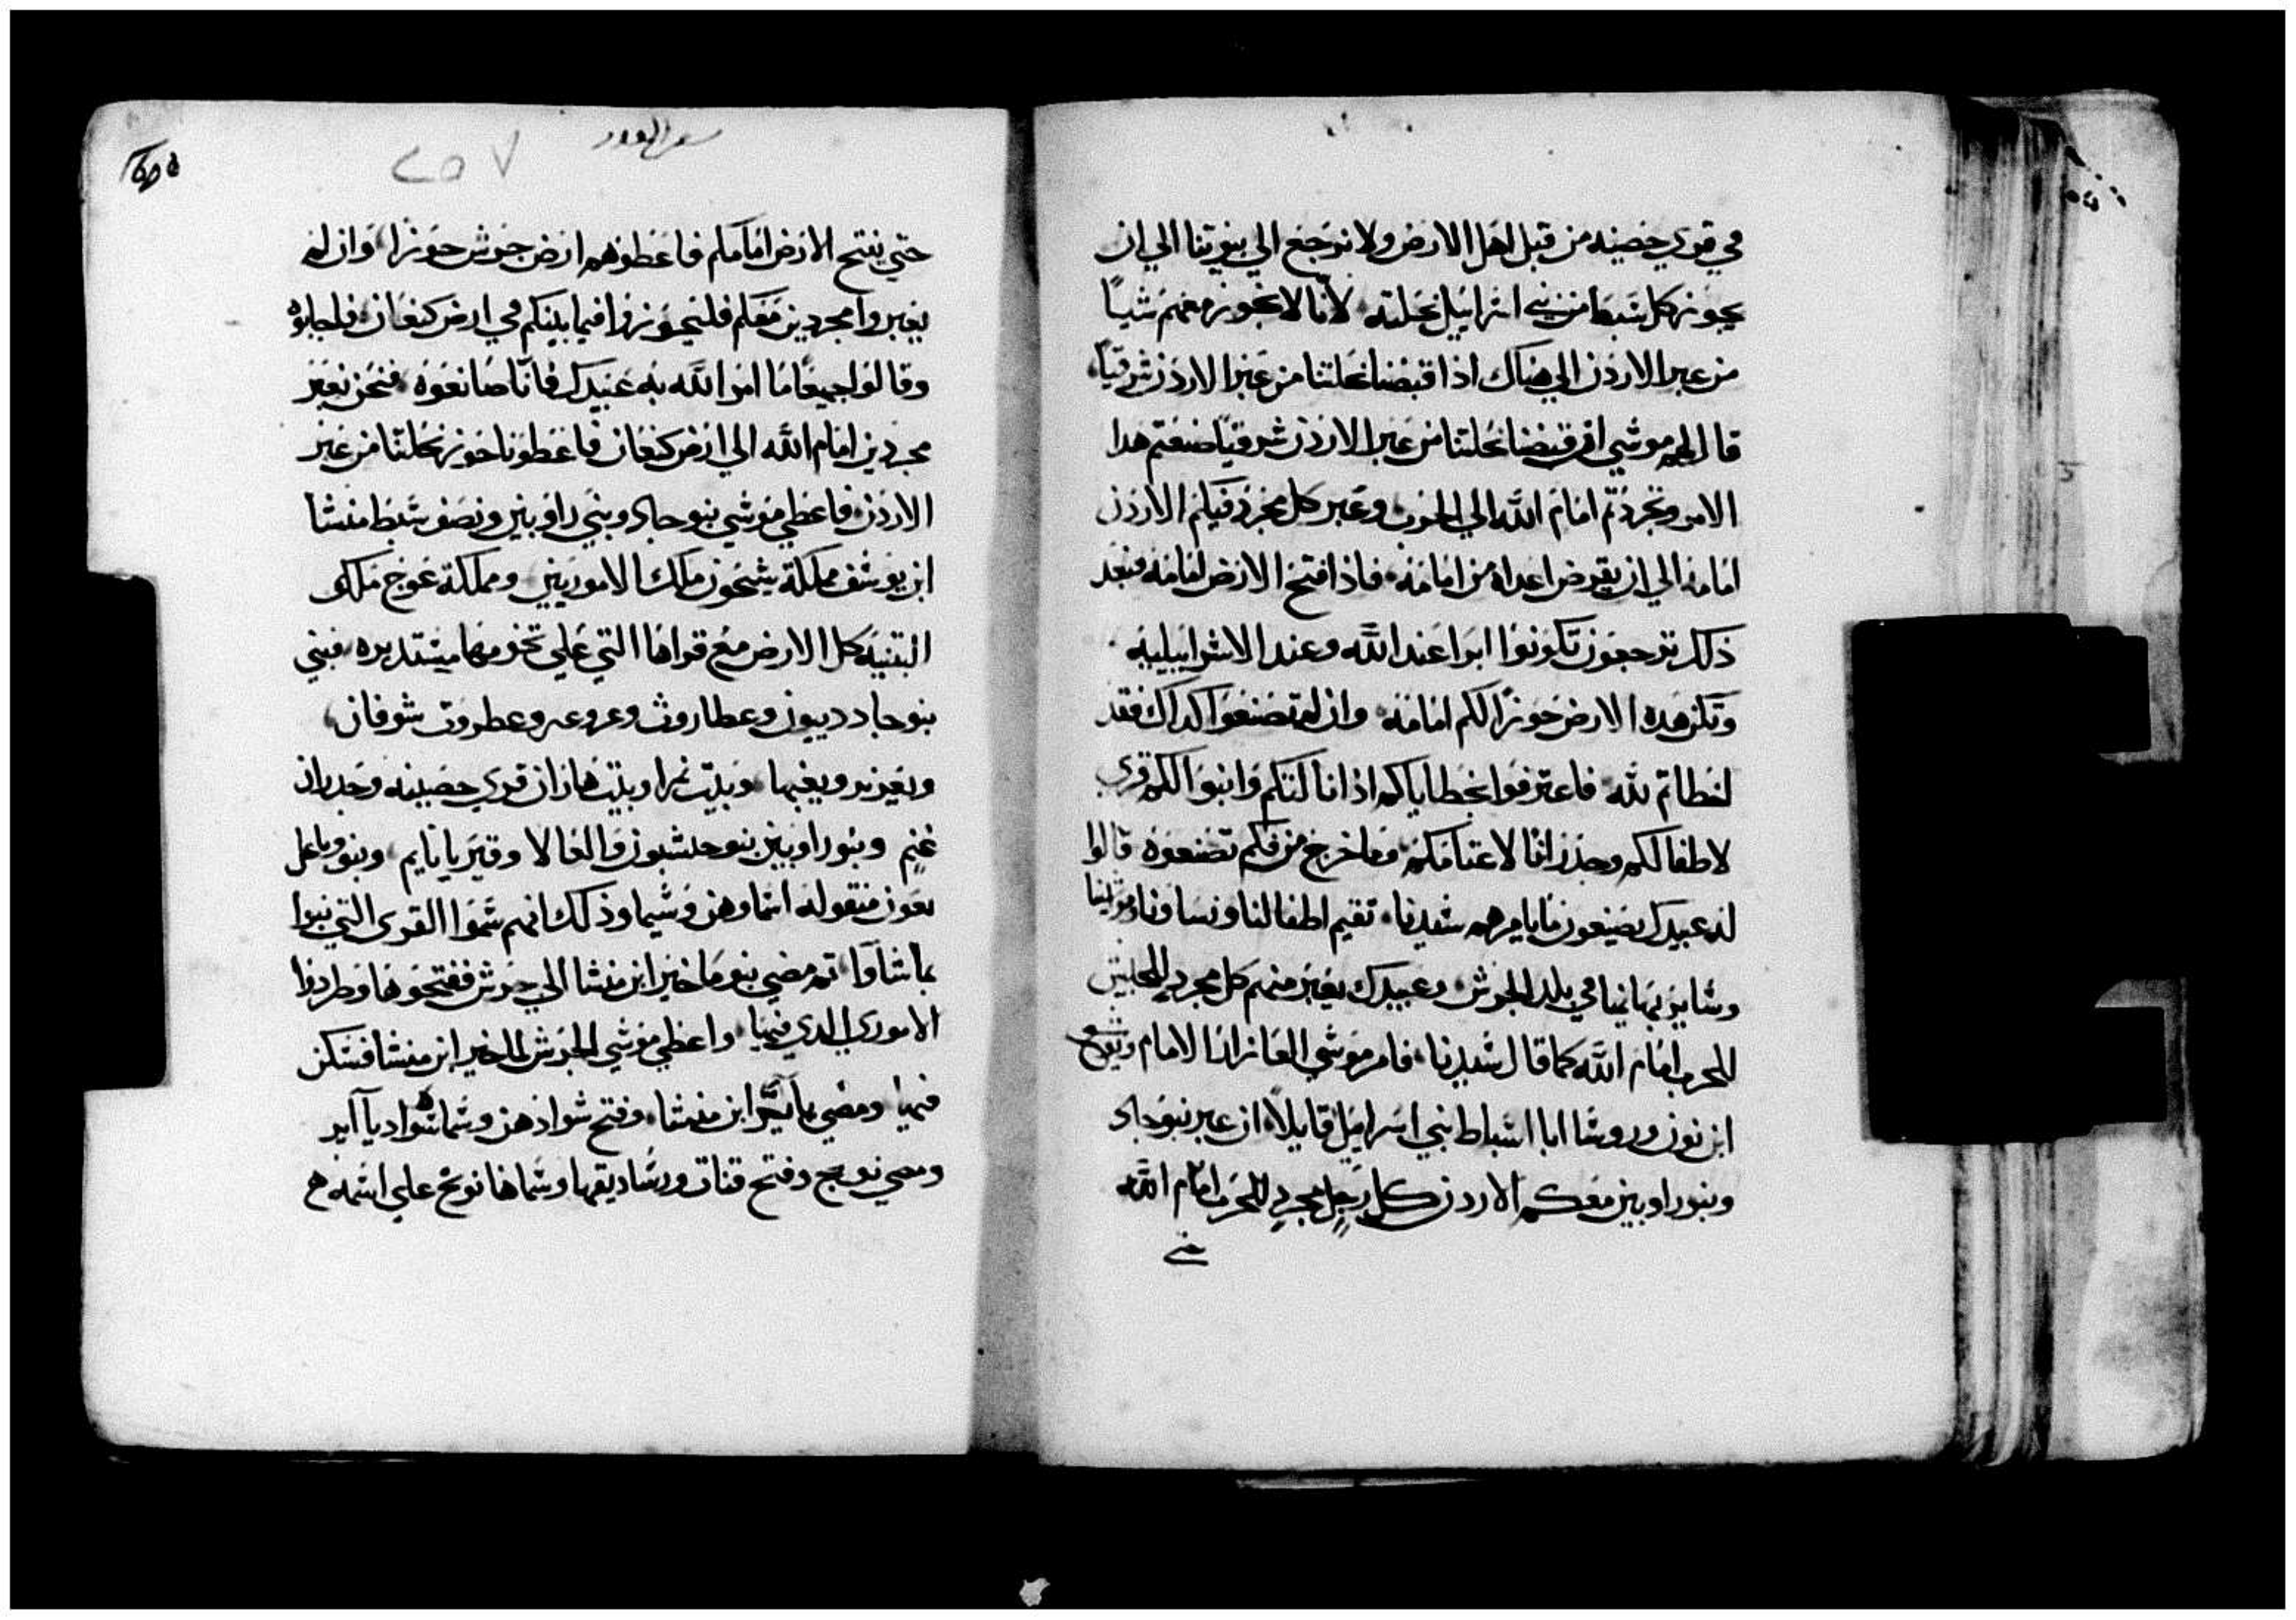 في قري حصينه من قبل اهل الارض ولا نرجع الي بيوتنا الي ان
يجوز كل سبط من بني اسرائيل نحلته لانا لا نجوز معهم شيا
من عبر الاردن الي هناك اذا قبضنا نحلتنا من عبر الاردن شرقيا
قال لهم موسي ان قبضنا نحلتنا من عبر الاردن شرقيا صنعتم هدا
الامر وتجردتم امام الله الي الحرب وعبر كل مجرد فيكم الاردن
امامه الي ان يقرض اعداه من امامه فاذا فتح الارض امامه فبعد
ذلك ترجعون تكونوا ابرا عند الله وعند الاسراييليه
وتكن هده الارض حوزا لكم امامه وان لم تصنعوا كداك فقد
اخطاتم لله فاعترفوا بخطاياكم اذا نالتكم وابنوا لكم قري
لاطفالكم وجدرانا لاغنامكم وما خرج من فكم تصنعوه قالوا
له عبيدك يصنعون ما يامرهم سيدنا تقيم اطفالنا ونساونا ومواشينا
وساير بهايمنا في بلد الجرش وعبيدك يعبر منهم كل مجرد للجيش
للحرب امام الله كما قال سيدنا فامر موسي العازار الامام ويوشع
ابن نون وروسا ابا اسباط بني اسراييل قايلا ان عبر بنو جاد
وبنو راوبين معكم الاردن كل رجل مجرد للحرب امام الله
سفر العدد
٢٥٧
حتي نفتح الارض امامكم فاعطوهم ارض جرش حوزا وان لم
يعبروا مجردين معكم فليحوزوا فيما بينكم في ارض كنعان فاجابوه
وقالوا جميعا ما امر الله به عبيدك فانا صانعوه فنحن نعبر
مجردين امام الله الي ارض كنعان فاعطونا حوز نحلتنا من عبر
الاردن فاعطي موسي بنو جاد وبني راوبين ونصف سبط منشا
ابن يوسف مملكة سيحون ملك الاموريين ومملكة عوج ملك
البتنيه كل الارض مع قراها التي علي تخومها مستديره فبني
بنو جاد ديبون وعطاروث وعروعر وعطروت شوفان
ويعزير ويغبها وبيت نمرا وبيت هاران قري حصينه وجدران
غنم وبنو راوبين بنو حشبون والعالا وقيريا ثايم ونبو وباعل
معون منقوله اسماوهن وشيما وذلك انهم سموا القرى التي بنوا
باسما ثم مضي بنو ماخير ابن منشا الي جرش ففتحوها وطردوا
الاموري الدي فيها واعطي موسي الجرش لماخير ابن منشا فسكن
فيها ومضي يآاير ابن منشا وفتح شواذهن وسماها شواد يآاير
ومضي نوبح وفتح قنات ورساديقها وسماها نوبح علي اسمه